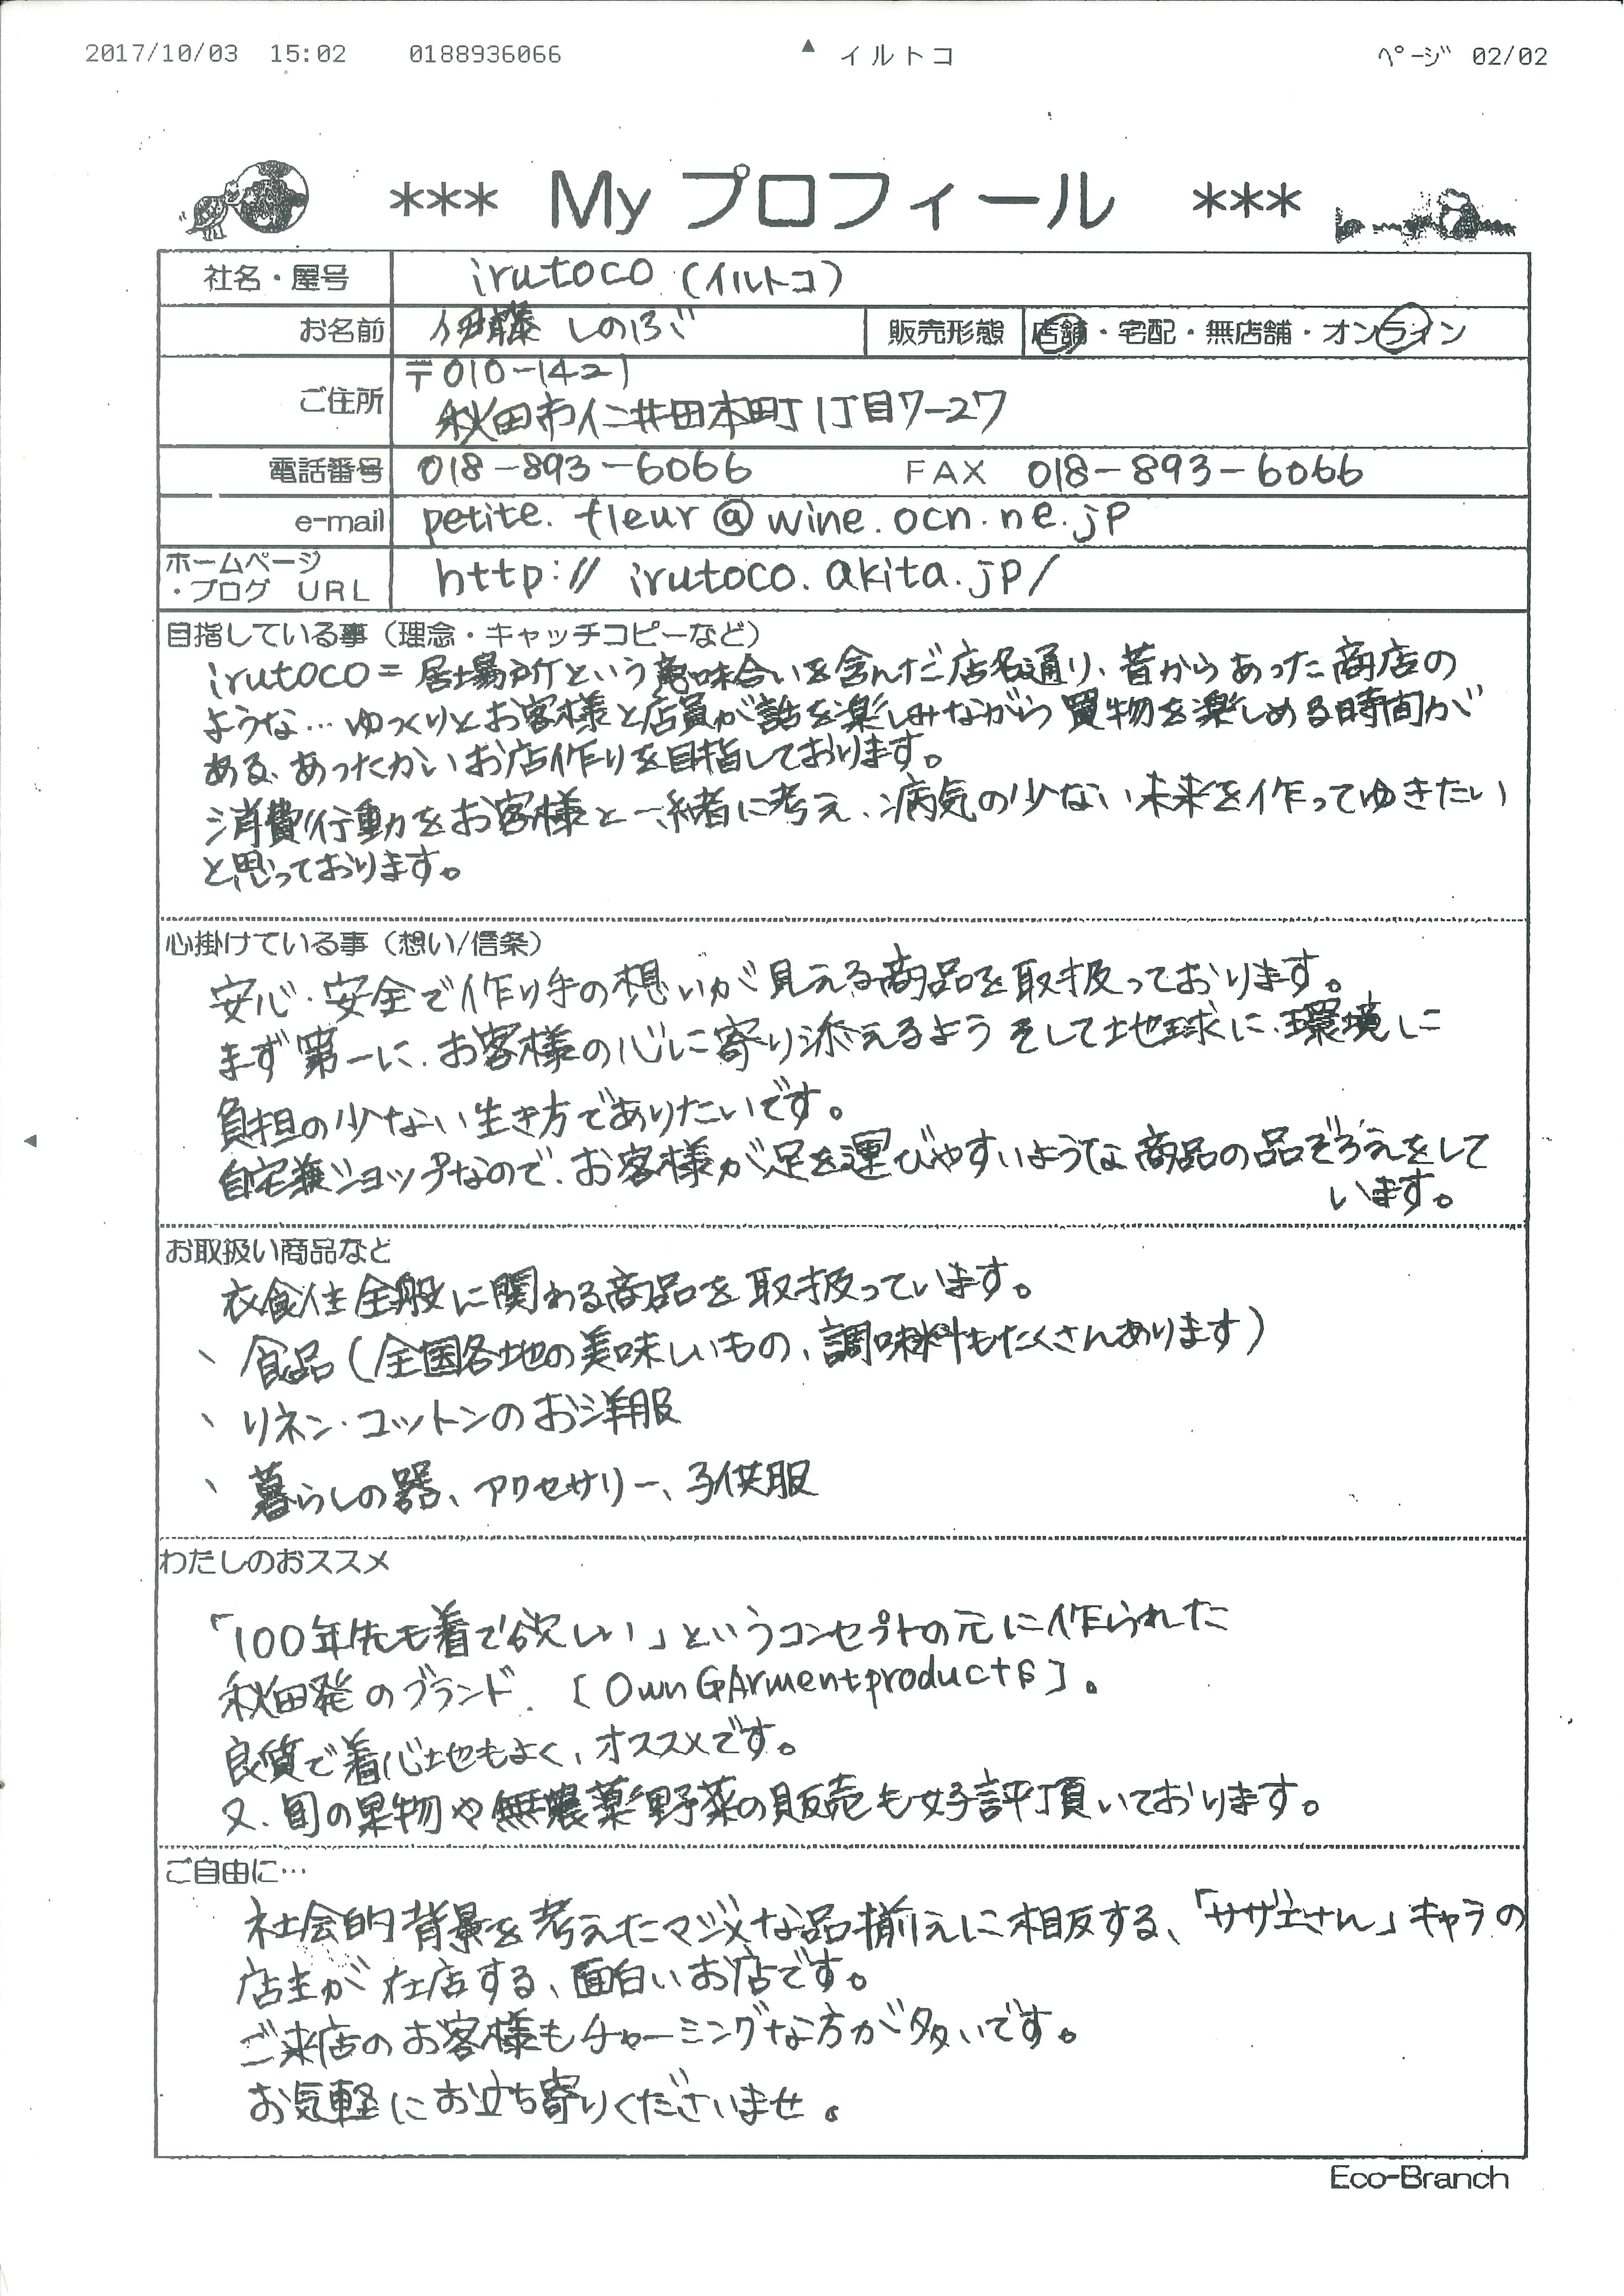 2017/10/03 15:02 0188936066 ▲ イルトコ ページ 02/02
*** My プロフィール ***
社名・屋号 irutoco (イルトコ)
お名前 伊藤 しのぶ 販売形態 店舗・宅配・無店舗・オンライン
ご住所 〒010-1421
秋田市仁井田本町1丁目7-27
電話番号 018-893-6066 FAX 018-893-6066
e-mail petite.fleur@wine.ocn.ne.jp
ホームページ
・ブログ URL http://irutoco.akita.jp/
目指している事(理念・キャッチコピーなど)
irutoco=居場所という意味合いを含んだ店名通り、昔からあった商店の
ような…ゆっくりとお客様と店員が話を楽しみながら買物を楽しめる時間が
ある、あったかいお店作りを目指しております。
消費行動をお客様と一緒に考え、病気の少ない未来を作ってゆきたい
と思っております。
心掛けている事(想い/信条)
安心・安全で作り手の想いが見える商品を取扱っております。
まず第一に、お客様の心に寄り添えるよう そして地球に、環境に
負担の少ない生き方でありたいです。
自宅兼ショップなので、お客様が足を運びやすいような商品の品ぞろえをして
います。
お取扱い商品など
衣食住全般に関わる商品を取扱っています。
、食品(全国各地の美味しいもの、調味料もたくさんあります)
、リネン・コットンのお洋服
、暮らしの器、アクセサリー、子供服
わたしのおススメ
「100年先も着て欲しい」というコンセプトの元に作られた
秋田発のブランド、[OwnGArmentproducts]。
良質で着心地もよく、オススメです。
又、旬の果物や無農薬野菜の販売も好評頂いております。
ご自由に…
社会的背景を考えたマジメな品揃えに相反する、「サザエさん」キャラの
店主が在店する、面白いお店です。
ご来店のお客様もチャーミングな方が多いです。
お気軽にお立ち寄りくださいませ。
Eco-Branch